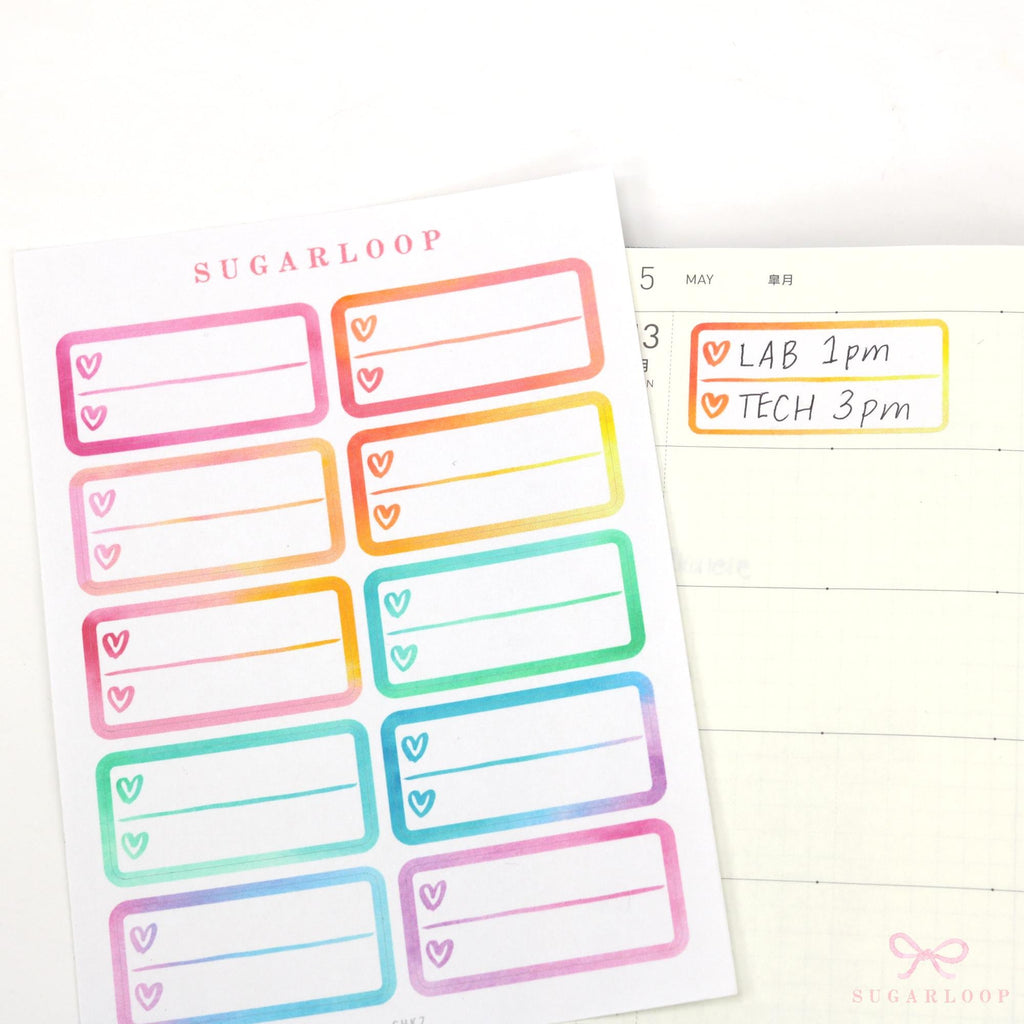 SUGARLOOP
5 MAY 皐月
LAB 1pm
TECH 3pm
SUGARLOOP